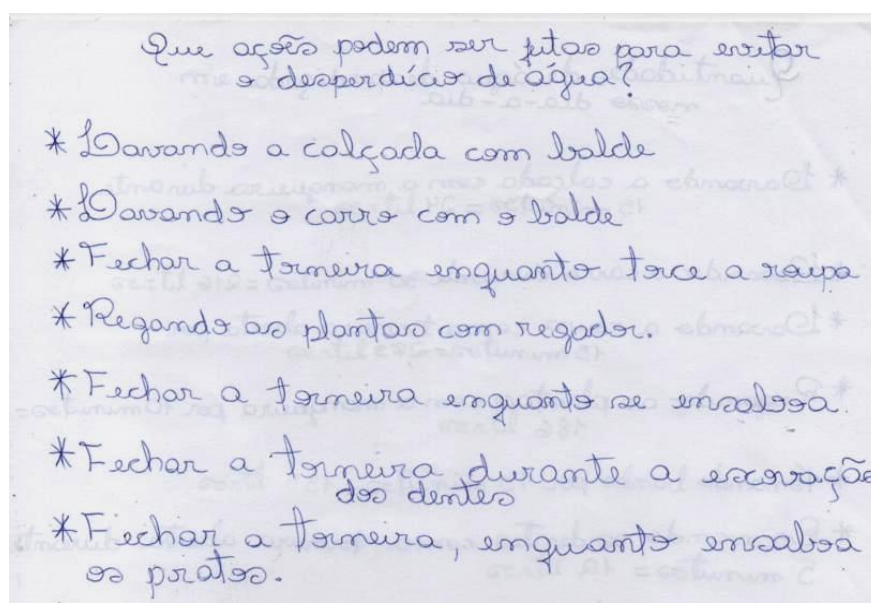 Que ações podem ser feitas para evitar
o desperdício de água?
* Lavando a calçada com balde
* Lavando o carro com o balde
* Fechar a torneira enquanto torce a roupa
* Regando as plantas com regador.
* Fechar a torneira enquanto se ensaboa.
* Fechar a torneira durante a escovação
dos dentes
* Fechar a torneira, enquanto ensaboa
os pratos.